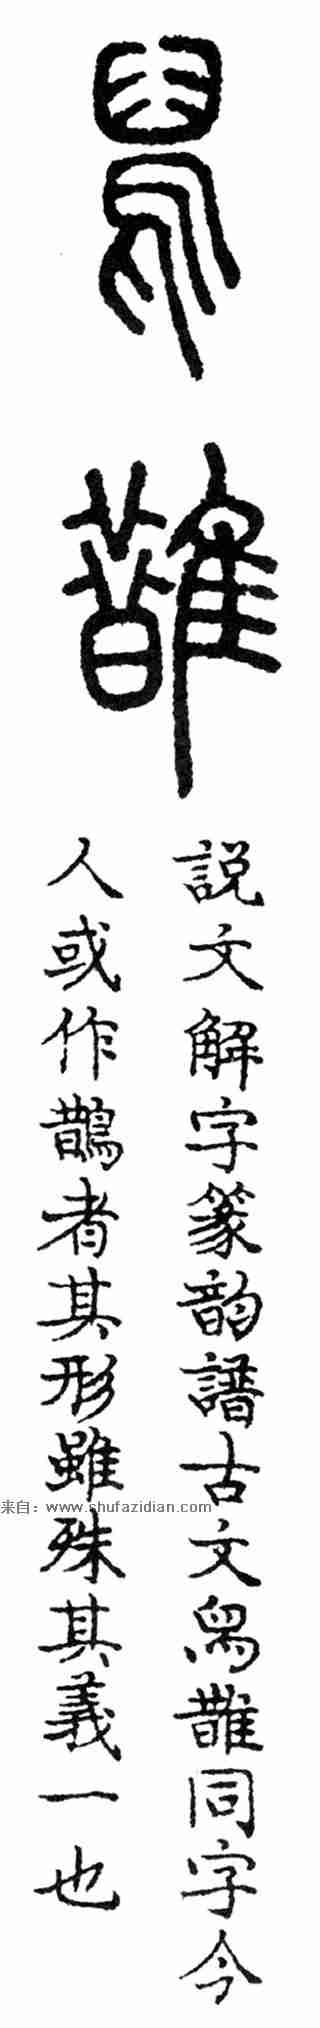 舄
䧿
説文解字篆韵譜古文舄䧿同字今
人或作鵲者其形雖殊其義一也
来自：www.shufazidian.com